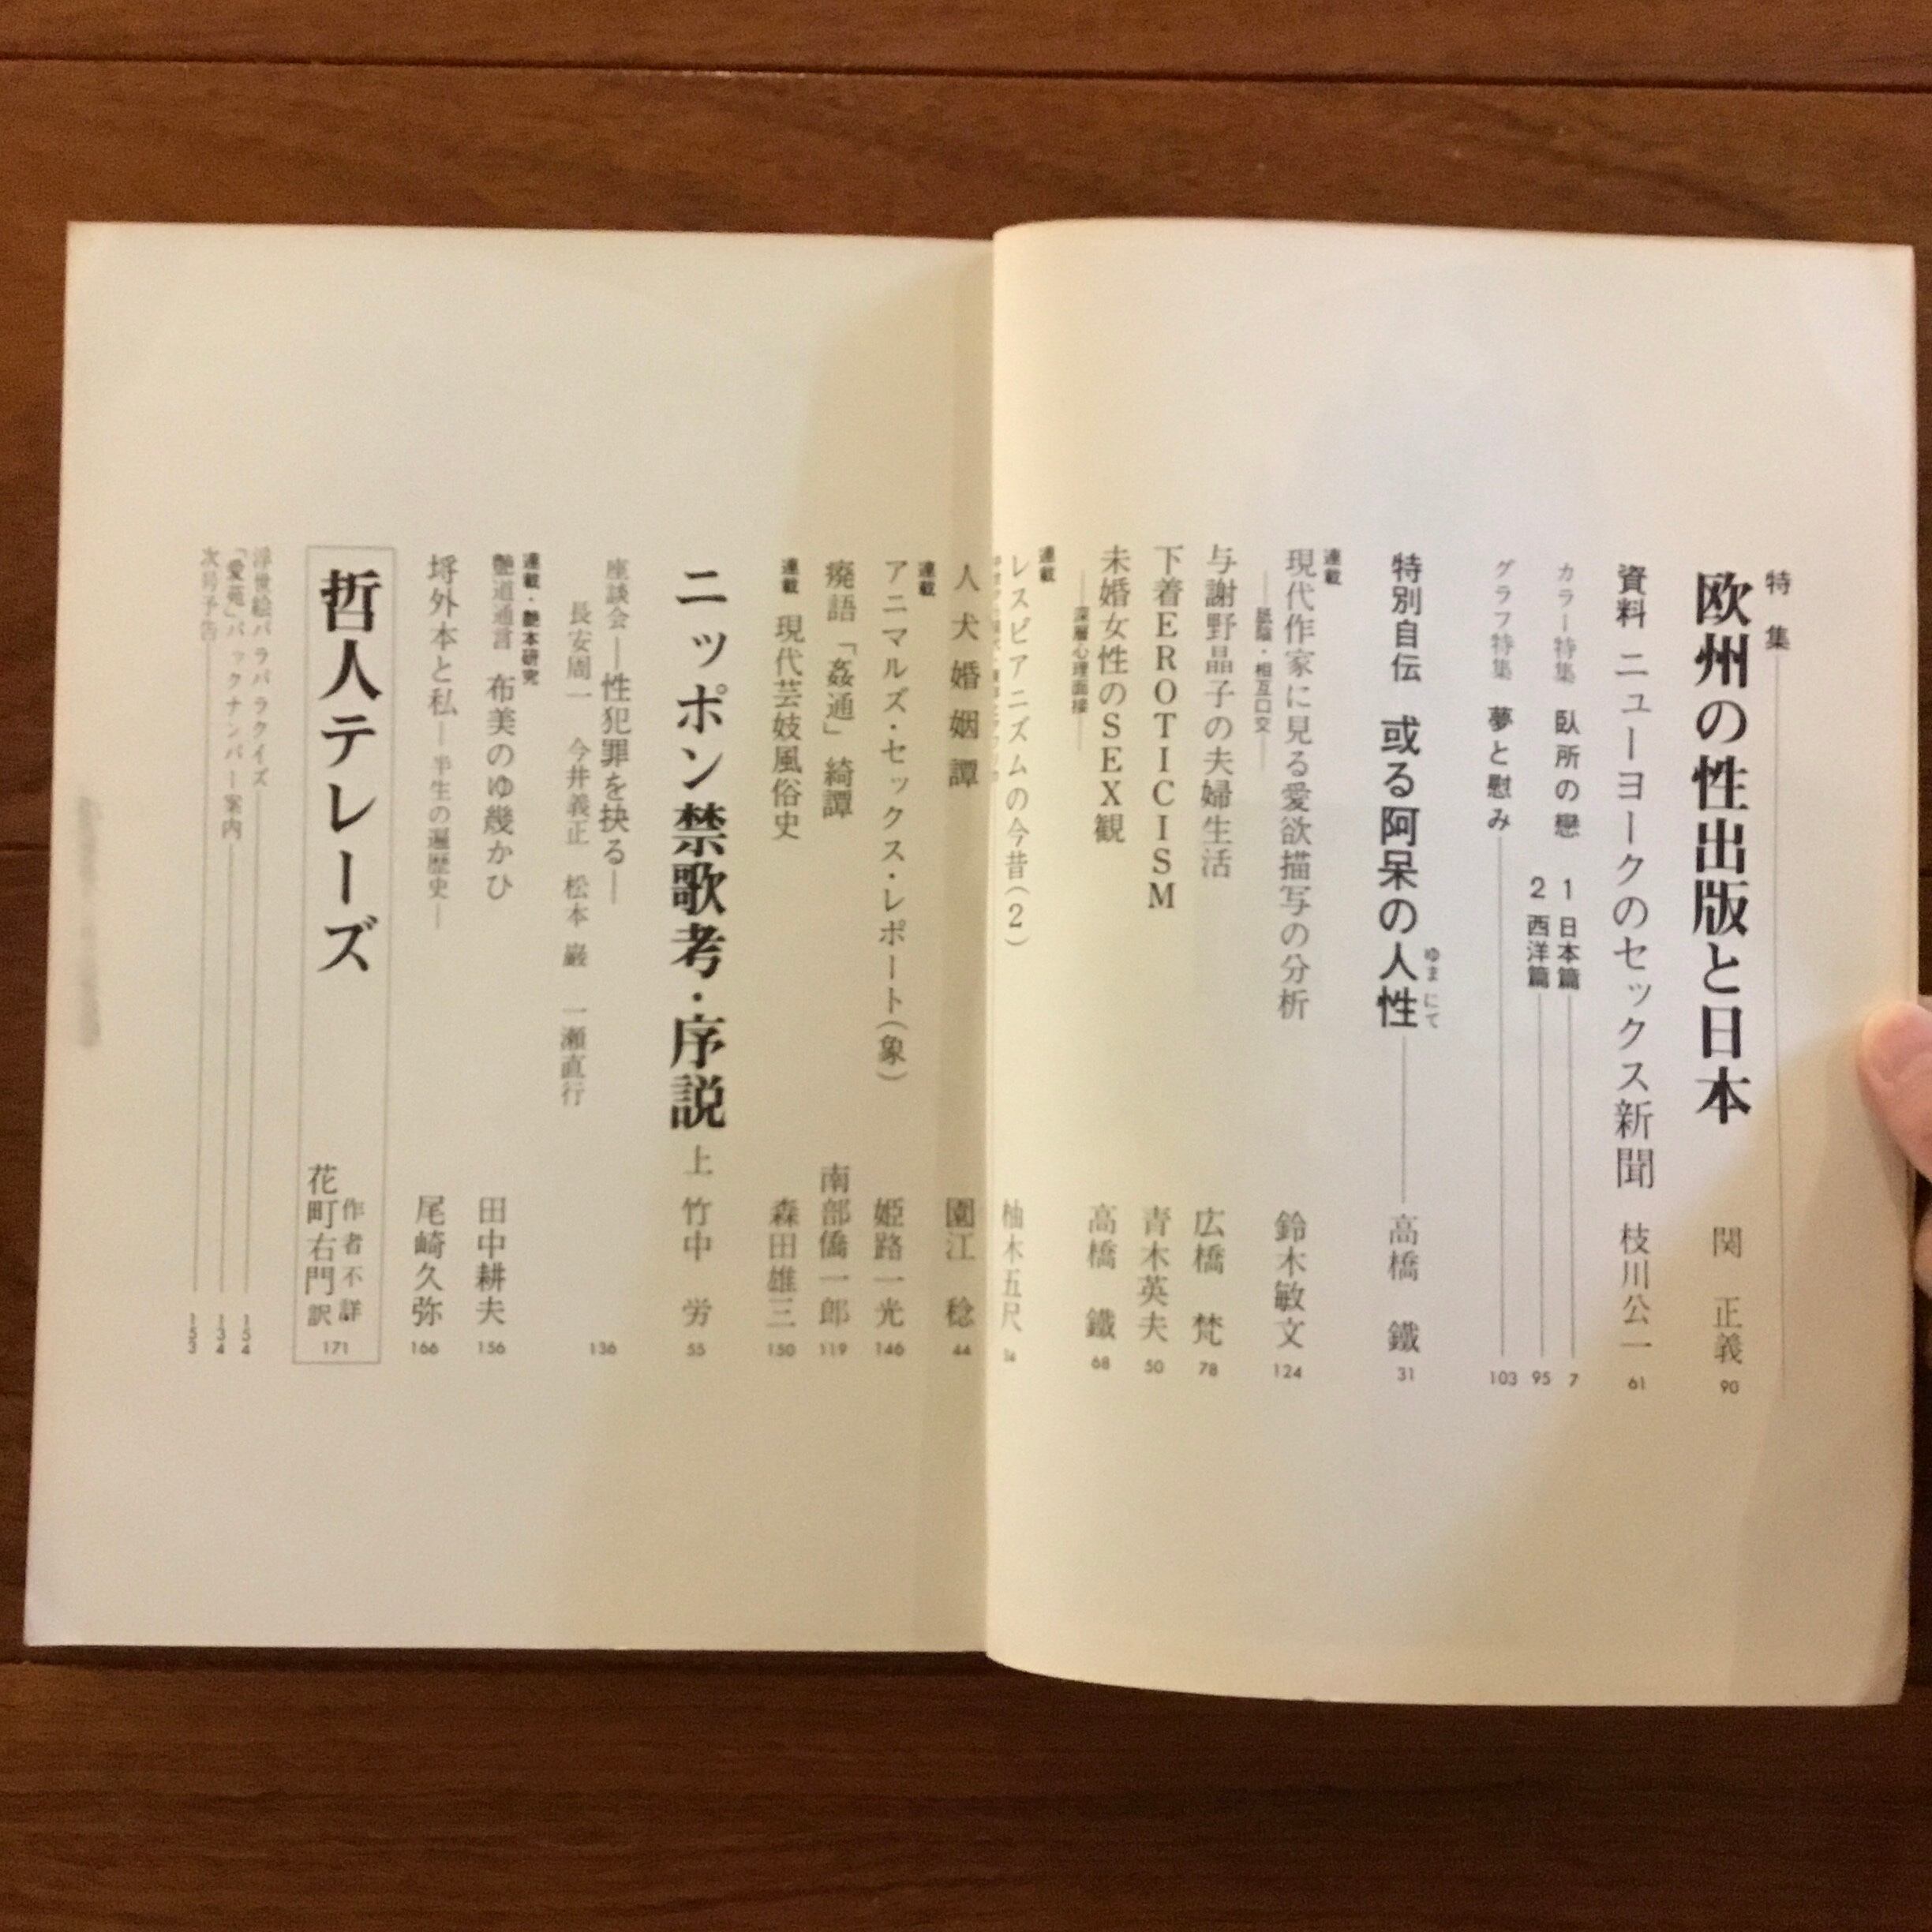 特集
欧州の性出版と日本 関 正義 90
資料 ニューヨークのセックス新聞 枝川公一 61
カラー特集 臥所の戀 1 日本篇 7
2 西洋篇 95
グラフ特集 夢と慰み 103
特別自伝 或る阿呆の人性 高橋 鐵 31
ゆまにて
連載
現代作家に見る愛欲描写の分析 鈴木敏文 124
・相互口交
与謝野晶子の夫婦生活 広橋 梵 78
下着EROTICISM 青木英夫 50
未婚女性のSEX観 高橋 鐵 68
深層心理面接
連載
レスビアニズムの今昔(2) 柚木五尺
人犬婚姻譚 園江 稔 44
連載
アニマルズ・セックス・レポート(象) 姫路一光 146
廃語「姦通」綺譚 南部僑一郎 119
連載 現代芸妓風俗史 森田雄三 150
ニッポン禁歌考・序説 上 竹中 労 55
座談会―性犯罪を抉る― 136
長安周一 今井義正 松本 巌 一瀬直行
連載・艶本研究
艶道通言 布美のゆ幾かひ 田中耕夫 156
埒外本と私―半生の遍歴史― 尾崎久弥 166
哲人テレーズ 作者不詳 花町右門訳 171
浮世絵パラパラクイズ 154
「愛苑」バックナンバー案内 134
次号予告 153